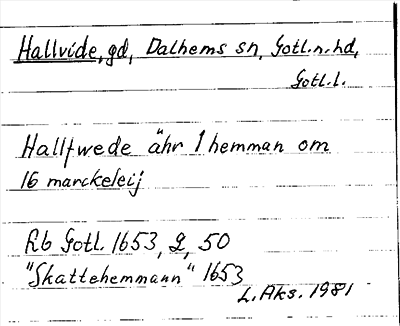 Hallvide, gd, Dalhems sn, Gotl.n.hd,
Gotl.l.
Hallfwede ähr 1 hemman om
16 marckeleij
Rb Gotl. 1653, 2, 50
"Skattehemmann" 1653
L. Aks. 1981